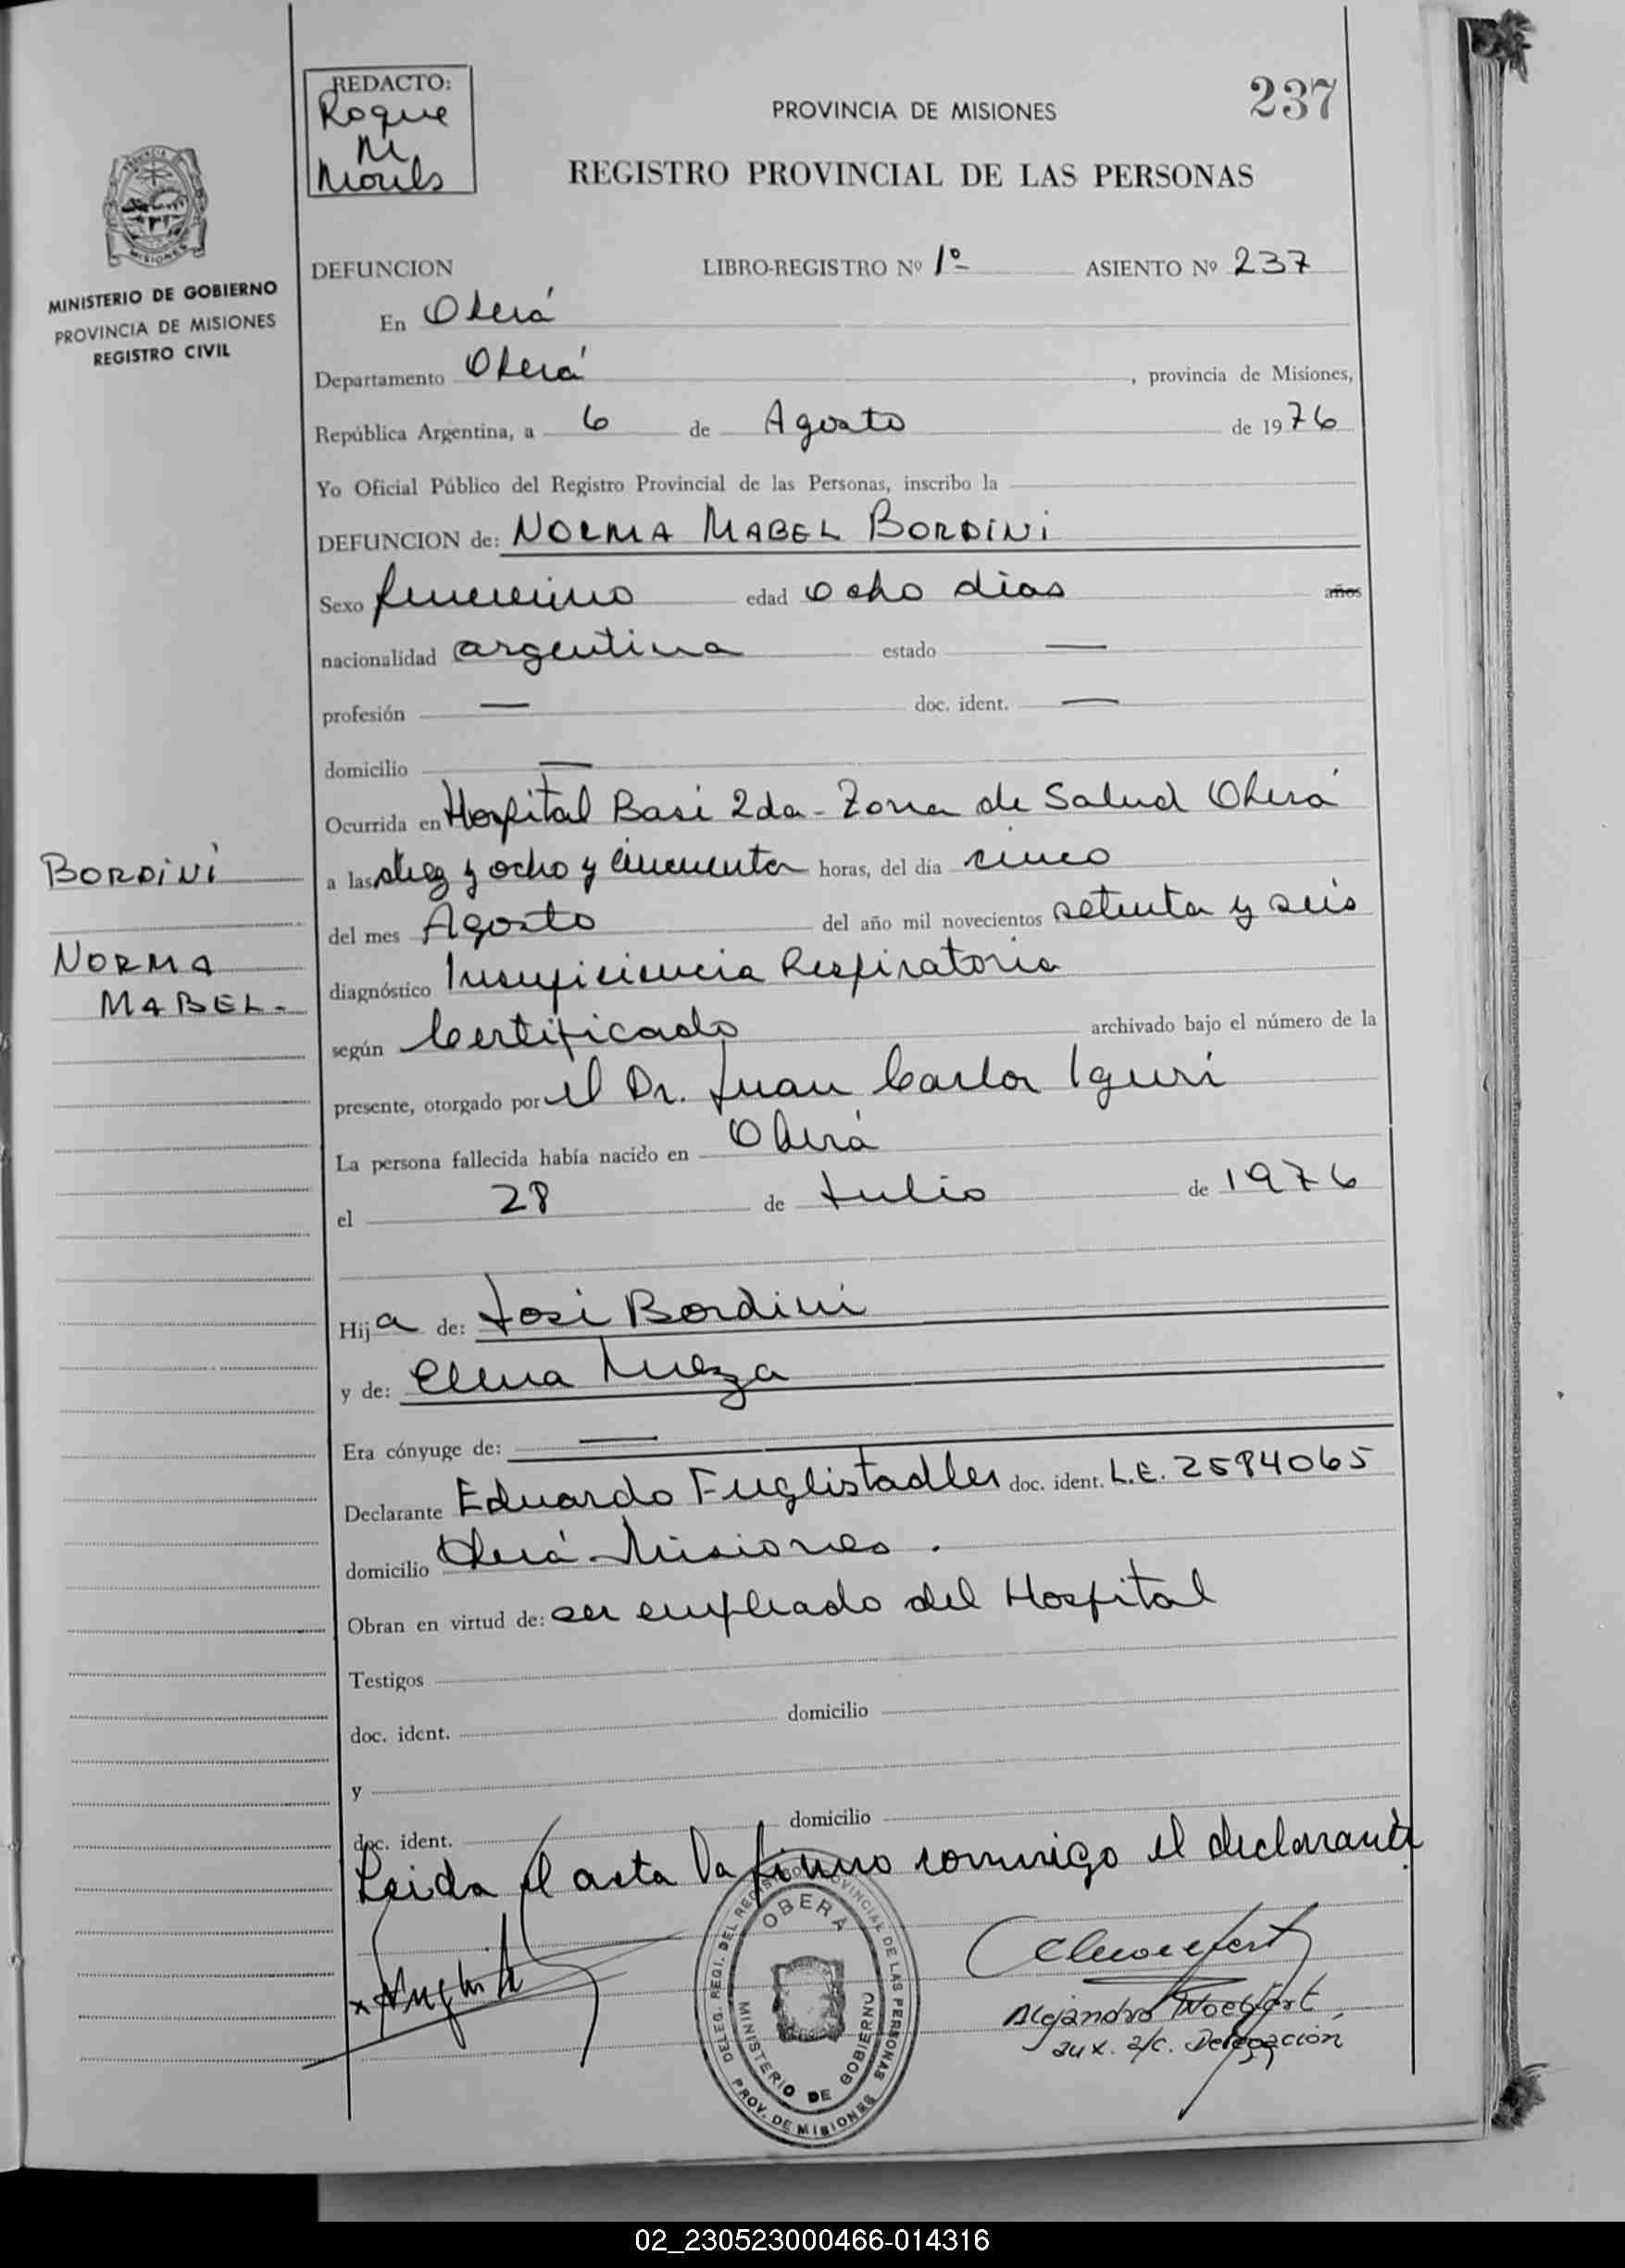 REDACTO:
Roque
M
237
PROVINCIA DE MISIONES
REGISTRO PROVINCIAL DE LAS PERSONAS
MINISTERIO DE GOBIERNO
PROVINCIA DE MISIONES
REGISTRO CIVIL
DEFUNCION LIBRO-REGISTRO Nº 1º ASIENTO Nº 237
En Oberá
Departamento Oberá, provincia de Misiones,
República Argentina, a 6 de Agosto de 1976
Yo Oficial Público del Registro Provincial de las Personas, inscribo la
DEFUNCION de: NORMA MABEL BORDINI
Sexo femenino edad ocho dias años
nacionalidad argentina estado —
profesión — doc. ident. —
domicilio —
Ocurrida en Hospital Base 2da - Zona de Salud Oberá
BORDINI
a las diez y ocho y cincuenta horas, del día cinco
del mes Agosto del año mil novecientos setenta y seis
NORMA
MABEL.-
diagnóstico Insuficiencia Respiratoria
según Certificado archivado bajo el número de la
presente, otorgado por el Dr. Juan Carlos Iguri
La persona fallecida había nacido en Oberá
el 28 de Julio de 1976
Hija de: José Bordini
y de: Elena
Era cónyuge de: —
Declarante Eduardo Fuglistadler doc. ident. L.E. 2584065
domicilio Oberá - Misiones.
Obran en virtud de: ser empleado del Hospital
Testigos
doc. ident. domicilio
y
doc. ident. domicilio
Leida el acta la firmo conmigo el declarante
DELEG. REGI. DEL REGISTRO PROVINCIAL DE LAS PERSONAS
OBERA
MINISTERIO DE GOBIERNO
PROV. DE MISIONES
Alejandro
aux. a/c. Delegación
02_230523000466-014316